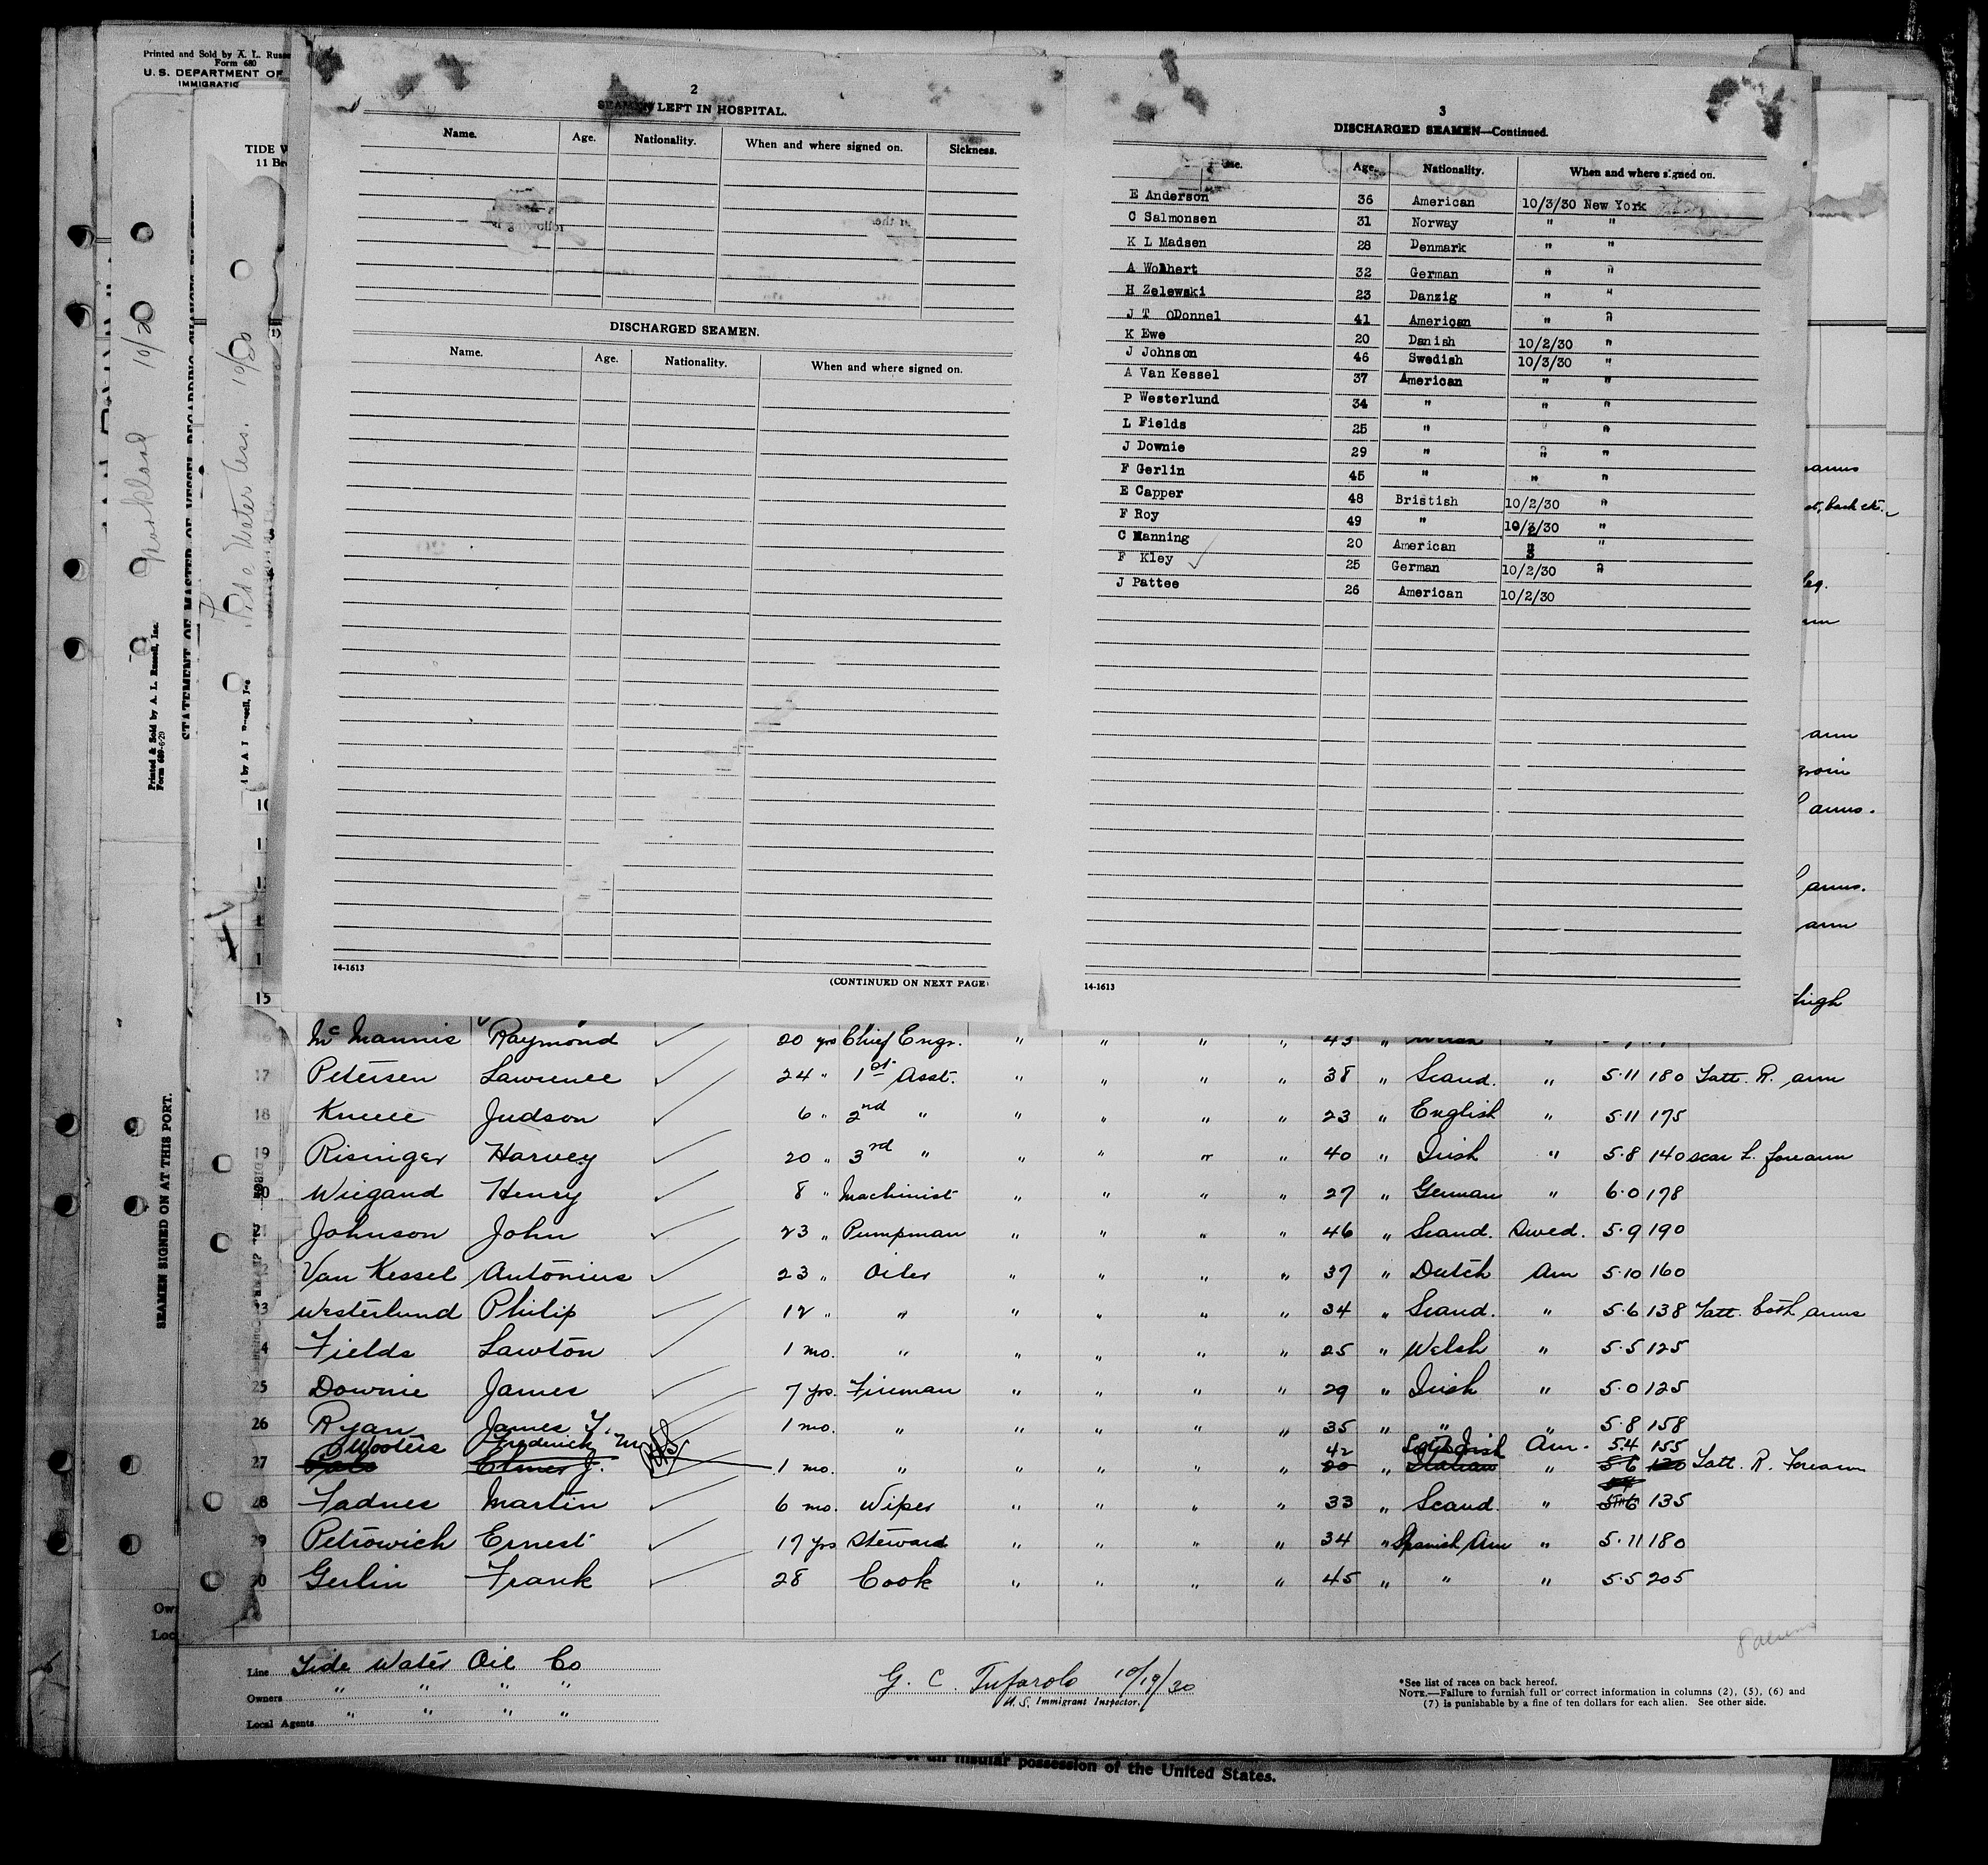 Printed and Sold by A. L.
Form 680
U. S. DEPARTMENT OF
TIDE
2
SEAMEN LEFT IN HOSPITAL.
Name. Age. Nationality. When and where signed on. Sickness.
DISCHARGED SEAMEN.
Name. Age. Nationality. When and where signed on.
14-1613
(CONTINUED ON NEXT PAGE)
3
DISCHARGED SEAMEN—Continued.
Age. Nationality. When and where signed on.
E Anderson 36 American 10/3/30 New York
C Salmonsen 31 Norway " "
K L Madsen 28 Denmark " "
A 32 German " "
H Zelewski 23 Danzig " "
J T ODonnel 41 American " "
K Ewe 20 Danish 10/2/30 "
J Johnson 46 Swedish 10/3/30 "
A Van Kessel 37 American " "
P Westerlund 34 " " "
L Fields 25 " " "
J Downie 29 " " "
F Gerlin 45 " " "
E Capper 48 Bristish 10/2/30 "
F Roy 49 " "
C Manning 20 American "
F Kley 25 German 10/2/30 "
J Pattee 26 American 10/2/30
14-1613
STATEMENT OF MASTER OF VESSEL REGARDING CHANGES
Printed & Sold by A. L. Russell, Inc.
SEAMEN SIGNED ON AT THIS PORT.
15
McMannis Raymond 20 yrs Chief Engr. " " " " 43 "
17 Petersen Lawrence 24 " 1st Asst. " " " " 38 " Scand. " 5-11 180 Tatt. R. arm
18 Judson 6 " 2nd " " " " " 23 " English " 5-11 175
19 Risinger Harvey 20 " 3rd " " " " " 40 " Irish " 5-8 140 scar L. forearm
20 Wiegand Henry 8 " Machinist " " " " 27 " German " 6-0 178
Johnson John 23 " Pumpman " " " " 46 " Scand. Swed. 5-9 190
Van Kessel Antonius 23 " Oiler " " " " 37 " Dutch Am 5-10 160
Westerlund Philip 12 " " " " " " 34 " Scand. " 5-6 138 Tatt. both arms
Fields Lawton 1 mo. " " " " " 25 " Welsh " 5-5 125
25 Downie James 7 yrs. Fireman " " " " 29 " Irish " 5-0 125
26 Ryan James 1 mo. " " " " " 35 " " " 5-8 158
Wooters Frederick M 42 Irish Am. 5.4 155
27 Elmer J. 1 mo. " " " " " 20 " Italian " 5-6 Tatt. R. Forearm
28 Fadnes Martin 6 mo. Wiper " " " " 33 " Scand. " 135
29 Petrowich Ernest 17 yrs Steward " " " " 34 " Spanish Am " 5-11 180
30 Gerlin Frank 28 Cook " " " " 45 " " " 5-5 205
Line Tide Water Oil Co
Owners " " " "
Local Agents " " " "
G. C. Tufarolo 10/19/30
U. S. Immigrant Inspector.
*See list of races on back hereof.
NOTE.—Failure to furnish full or correct information in columns (2), (5), (6) and
(7) is punishable by a fine of ten dollars for each alien. See other side.
of an insular possession of the United States.